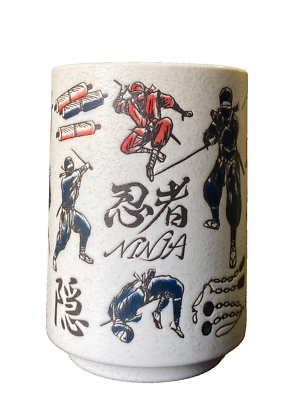 忍者
NINJA
隠